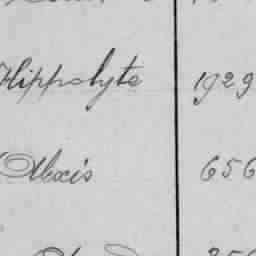 Hippolyte 1929
Alexis 656